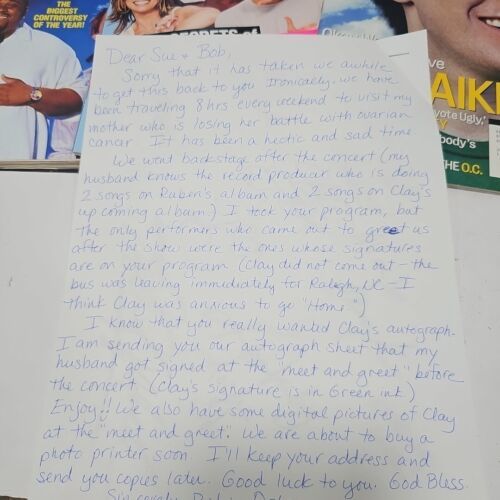 THE BIGGEST
CONTROVERSY
OF THE YEAR!
SECRETS of
ve
AIKE
vote Ugly,'
Y
body's
THE O.C.
Dear Sue + Bob,
Sorry that it has taken we awhile
to get this back to you Ironically. we have
been traveling 8 hrs every weekend to visit my
mother who is losing her battle with ovarian
cancer It has been a hectic and sad time
We went backstage after the concert (my
husband knows the record producer who is doing
2 songs on Ruben's album and 2 songs on Clay's
up coming album.) I took your program, but
the only performers who came out to greet us
after the show were the ones whose signatures
are on your program (Clay did not come out - the
bus was leaving immediately for Raleigh, NC - I
think Clay was anxious to go "Home.")
I know that you really wanted Clay's autograph.
I am sending you our autograph sheet that my
husband got signed at the "meet and greet" before
the concert (Clay's signature is in Green ink.)
Enjoy!! We also have some digital pictures of Clay
at the "meet and greet." We are about to buy a
photo printer soon I'll keep your address and
send you copies later. Good luck to you. God Bless.